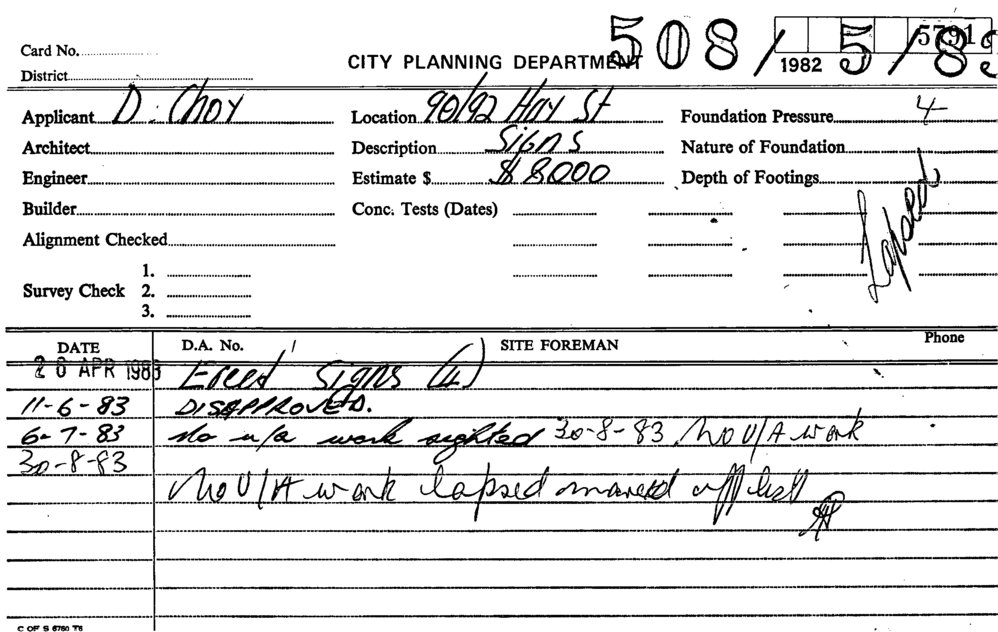 Card No.
District
CITY PLANNING DEPARTMENT
508/5/8
5791
1982
Applicant D. Choy
Location 90/92 Hay St
Foundation Pressure 4
Architect
Description Signs
Nature of Foundation
Engineer
Estimate $ $ 8000
Depth of Footings
Lapsed
Builder
Conc. Tests (Dates)
Alignment Checked
Survey Check
1.
2.
3.
DATE D.A. No. SITE FOREMAN Phone
20 APR 1983 Erect Signs (4)
11-6-83 DISAPPROVED.
6-7-83 No u/a work sighted 30-8-83 No U/A work
30-8-83
No U/A work lapsed off list
C OF S 6760 T6